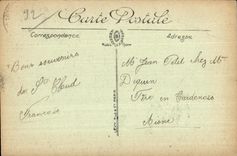 92
Carte Postale
Correspondance
Adresse
Bons souvenirs
de St Cloud
François
M Jean Petit chez Mr
Diquin
Fère en Tardenois
Aisne